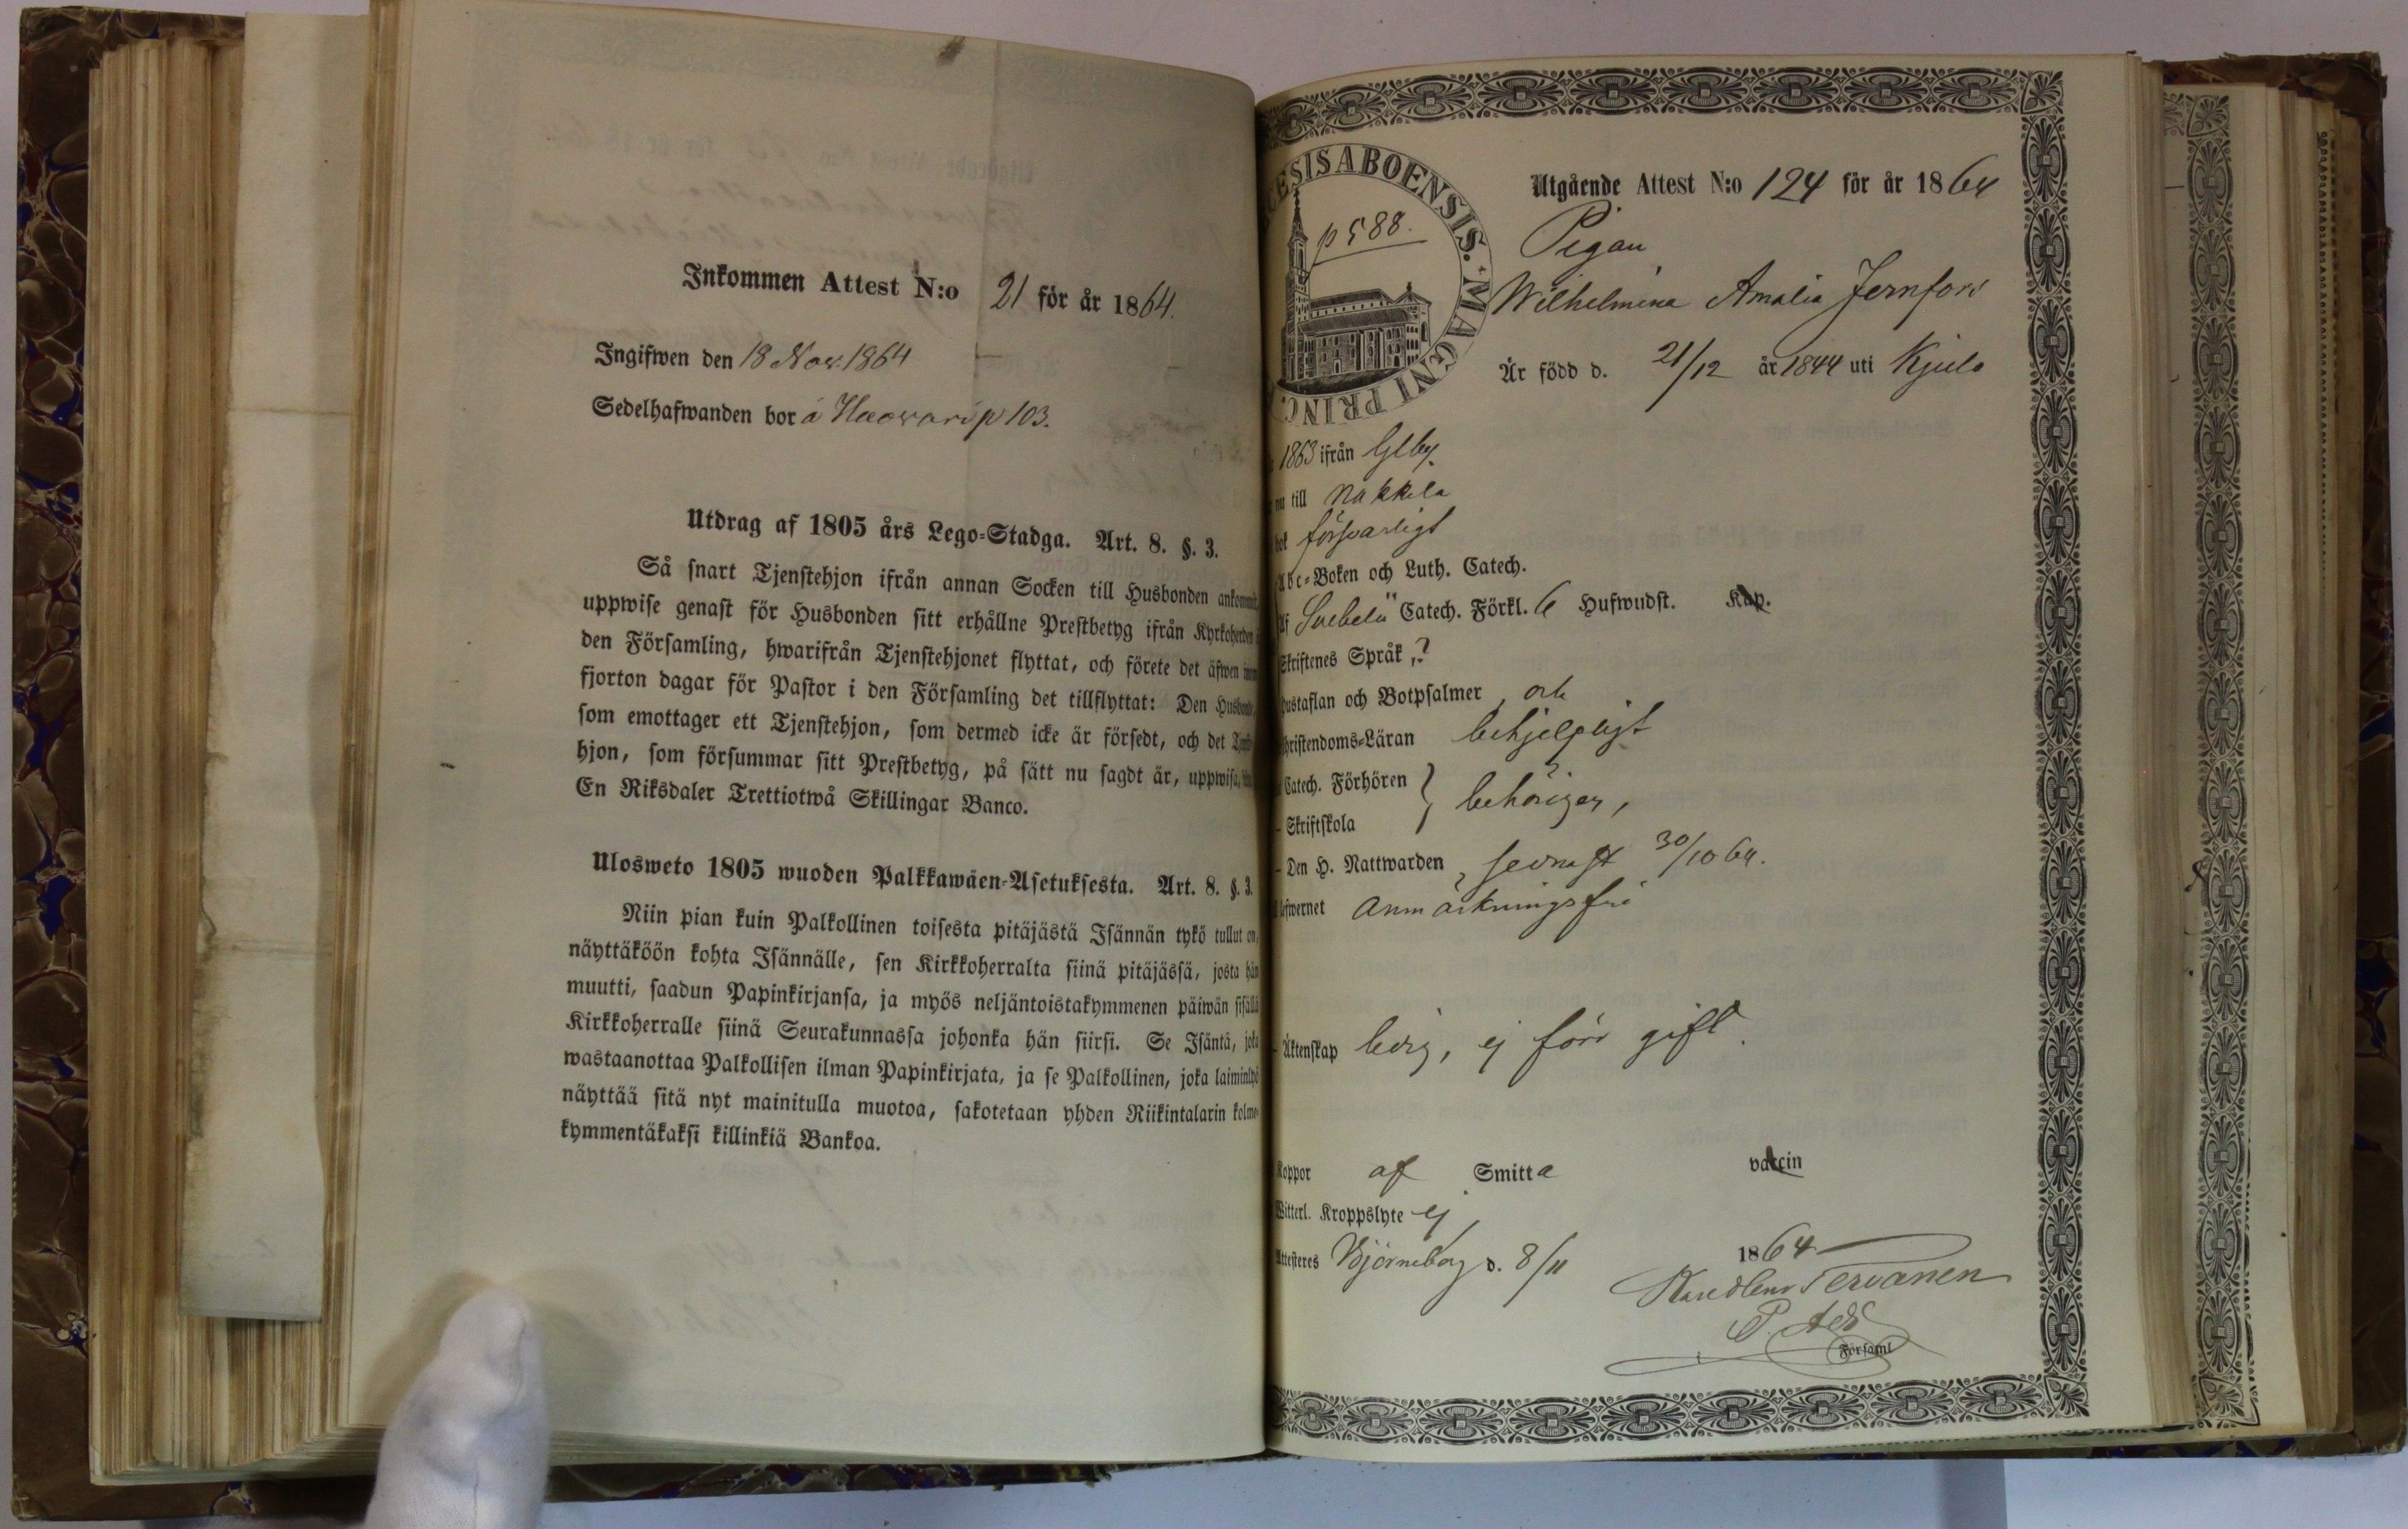 Inkommen Attest N:o 21 för år 1864.
Ingifwen den 18 Nov. 1864
Sedelhafwanden bor å Haavari p 103.
Utdrag af 1805 års Lego-Stadga. Art. 8. §. 3.
Så snart Tjenstehjon ifrån annan Socken till Husbonden
uppwise genast för Husbonden sitt erhållne Prestbetyg ifrån Kyrkoherden
den Församling, hwarifrån Tjenstehjonet flyttat, och förete det äfwen
fjorton dagar för Pastor i den Församling det tillflyttat: Den
som emottager ett Tjenstehjon, som dermed icke är försedt, och det
hjon, som försummar sitt Prestbetyg, på sätt nu sagdt är, uppwisa,
En Riksdaler Trettiotwå Skillingar Banco.
Ulosweto 1805 wuoden Palkkawäen-Asetuksesta. Art. 8. §. 3.
Niin pian kuin Palkollinen toisesta pitäjästä Isännän tykö tullut on,
näyttäköön kohta Isännälle, sen Kirkkoherralta siinä pitäjässä, josta hän
muutti, saadun Papinkirjansa, ja myös neljäntoistakymmenen päiwän sisällä
Kirkkoherralle siinä Seurakunnassa johonka hän siirsi. Se Isäntä, joka
wastaanottaa Palkollisen ilman Papinkirjata, ja se Palkollinen, joka
näyttää sitä nyt mainitulla muotoa, sakotetaan yhden Riikintalarin kolme-
kymmentäkaksi killinkiä Bankoa.
ESIS ABOENSIS. MAGNI PRINC.
p 588.
Utgående Attest N:o 124 för år 1864
Pigan
Wilhelmina Amalia Jernfors
Är född d. 21/12 år 1844 uti Kjulo
1863 ifrån Ulfsby
nu till Nakkila
bok försvarligt
Abc-Boken och Luth. Catech.
af Svebelii Catech. Förkl. 6 Hufwudst. Kap.
Skriftenes Språk, ?
Hustaflan och Botpsalmer, och
Christendoms-Läran behjelpligt
Catech. Förhören } behörigen,
- Skriftskola
- Den H. Nattwarden, sednast 30/10 64.
Lefwernet Anmärkningsfri
- Äktenskap ledig, ej förr gift.
Koppor af Smitta vaccin
Witterl. Kroppslyte ej
Attesteras Björneborg d. 8/11 1864
Tervanen
P. Adj
Församl